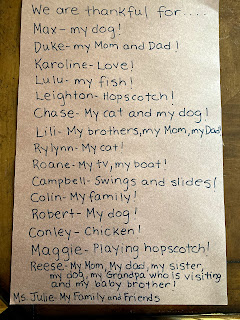 We are thankful for.....
Max- my dog!
Duke- my Mom and Dad!
Karoline- Love!
Lulu- my fish!
Leighton- Hopscotch!
Chase- My cat and my dog!
Lili- My brothers, my Mom, my Dad!
Rylynn- My cat!
Roane- My tv, my boat!
Campbell- Swings and slides!
Colin- My family!
Robert- My dog!
Conley- Chicken!
Maggie- Playing hopscotch!
Reese- My Mom, My dad, my sister,
my dog, my Grandpa who is visiting
and my baby brother!
Ms. Julie- My Family and Friends